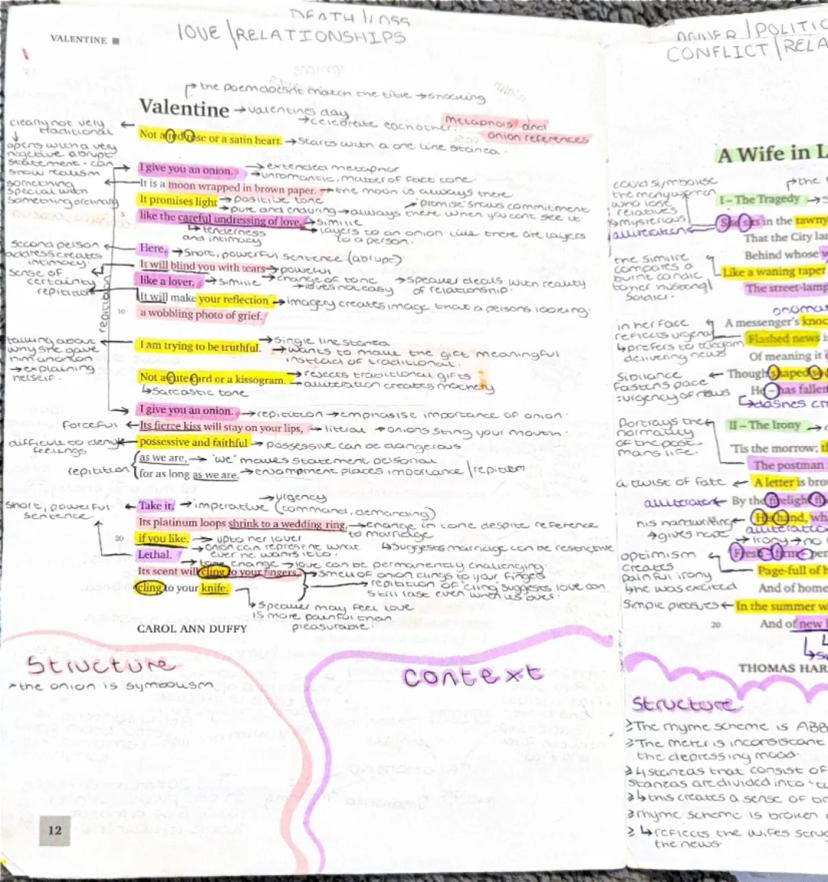 DEATH/LOSS
LOVE/RELATIONSHIPS
VALENTINE
the poem doesn't match the title → shocking
Valentine → valentines day
→ celebrate each other.
Metaphors and onion references
clearly not very traditional
Not a red rose or a satin heart. → Starts with a one line stanza.
opens with a very negative abrupt statement - can show realism
I give you an onion. → extended metaphor
→ unromantic, matter of fact tone
something special with something ordinary
It is a moon wrapped in brown paper. → the moon is always there
It promises light → positive tone
→ promise shows commitment
→ pure and enduring → always there when you cant see it
5
like the careful undressing of love. → simile
→ tenderness and intimacy
→ layers to an onion like there are layers to a person.
second person address creates intimacy.
Here. → Short, powerful sentence (abrupt)
It will blind you with tears → powerful
sense of certainty
repitition
like a lover. → Simile
→ change of tone
→ love is not easy
→ Speaker deals with reality of relationship.
It will make your reflection → imagery creates image that a persons looking.
10
a wobbling photo of grief.
repitition
talking about why she gave him an onion → explaining herself.
I am trying to be truthful. → Single line stanza
→ wants to make the gift meaningful instead of traditional.
Not a cute card or a kissogram. → rejects traditional gifts
→ alliteration creates mockery
↳ Sarcastic tone
I give you an onion. → repitition → emphasise importance of onion.
Forceful ← Its fierce kiss will stay on your lips, → literal → onions sting your mouth.
difficult to deny feelings
possessive and faithful → possessive can be dangerous
repitition
as we are, → 'we' makes statement personal
for as long as we are. → enjambment places importance / repitition
→ urgency
Short, powerful sentence
Take it. → imperative (command, demanding)
Its platinum loops shrink to a wedding ring, → change in tone despite reference to marriage
20
if you like. → up to her lover
→ onion can represent what ever he wants it to
→ Suggests marriage can be restrictive
Lethal. → tone change → love can be permanently challenging
Its scent will cling to your fingers, → Smell of onion clings to your fingers
→ repitition of cling suggests love can still last even when its over.
cling to your knife.
→ Speaker may feel love is more painful than pleasurable.
CAROL ANN DUFFY
Structure
→ the onion is symbolism
Context
12
POLITIC
CONFLICT/RELA
A Wife in L
→ the
could symbolise the many women who lose relatives
mysterious
alliteration
I – The Tragedy
She sits in the tawny
That the City la
Behind whose w
the simile compares burnt candle to her husband soldier.
Like a waning taper
The street-lamp
onoma
in her face
reflects urgency
↳ refers to telegram delivering news
A messenger's knoc
Flashed news i
Of meaning it
Sibilance
fastens pace
urgency of news
Though shaped s
He – has fallen
dashes cr
Portrays the normality of the post mans life.
II – The Irony
'Tis the morrow; t
The postman
a twist of fate ← A letter is brou
alliteration ← By the firelight fl
his handwriting ← His hand, wh
→ gives hope
alliteration
→ irony → no
optimism creates painful irony
↳ he was excited
Fresh – firm – pen
Page-full of h
And of home
Simple pleasures ← In the summer w
20
And of new l
THOMAS HAR
Structure
The rhyme scheme is ABB
The meter is inconsistant
the depressing mood.
4 stanzas that consist of
Stanzas are divided into
↳ this creates a sense of
rhyme scheme is broken
↳ reflects the wifes stru
the news.